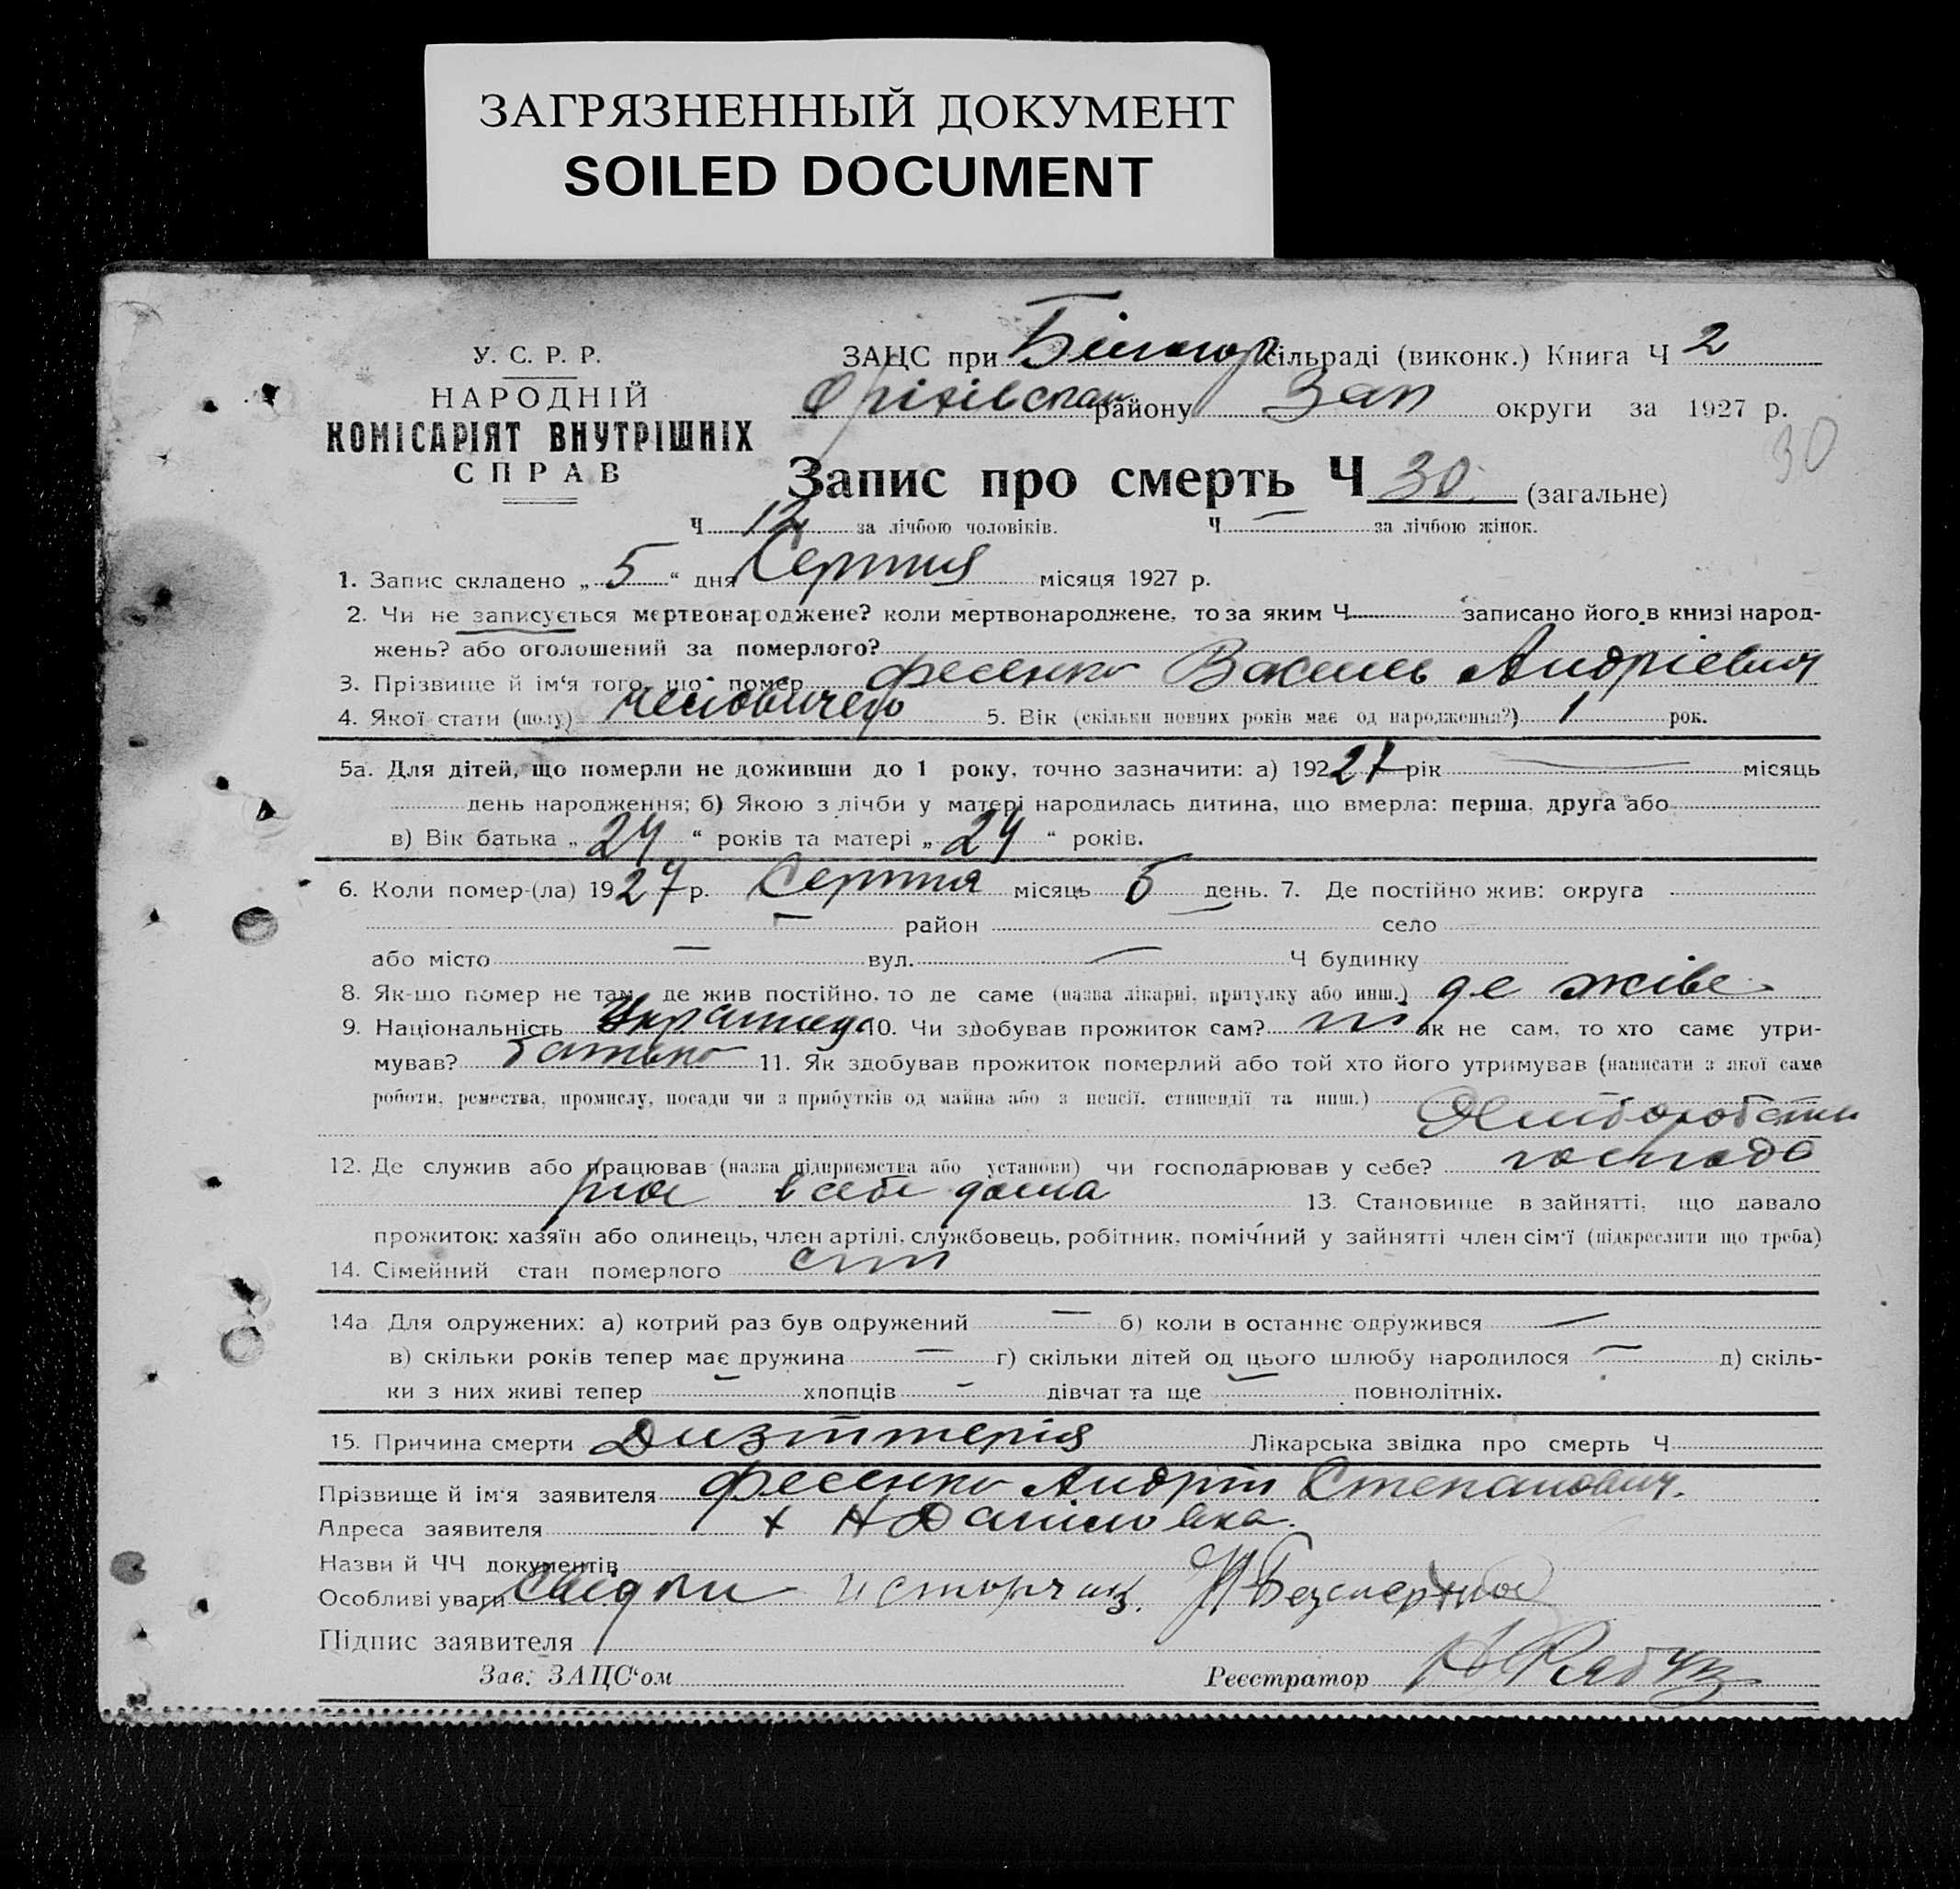 ЗАГРЯЗНЕННЫЙ ДОКУМЕНТ
SOILED DOCUMENT
У. С. Р. Р.
НАРОДНІЙ
КОМІСАРІЯТ ВНУТРІШНІХ
СПРАВ
ЗАЦС при сільраді (виконк.) Книга Ч 2
району Зап округи за 1927 р.
30
Запис про смерть Ч 30 (загальне)
Ч 12 за лічбою чоловіків. Ч — за лічбою жінок.
1. Запис складено „ 5 “ дня Серпня місяця 1927 р.
2. Чи не записується мертвонароджене? коли мертвонароджене, то за яким Ч записано його в книзі народ-
жень? або оголошений за померлого?
3. Прізвище й ім‘я того, що помер Фесенко Василь Андріевич
4. Якої стати (полу) человичего 5. Вік (скільки повних років має од народження?) 1 рок.
5а. Для дітей, що померли не доживши до 1 року, точно зазначити: а) 192 27 рік — місяць
день народження; б) Якою з лічби у матері народилась дитина, що вмерла: перша, друга або
в) Вік батька „ 24 “ років та матері „ 24 “ років.
6. Коли помер-(ла) 1927 р. Серпня місяць 5 день. 7. Де постійно жив: округа
— район село
або місто — вул. — Ч будинку
8. Як-що помер не там, де жив постійно, то де саме (назва лікарні, притулку або инш.) де живе
9. Національність 10. Чи здобував прожиток сам? ні як не сам, то хто саме утри-
мував? батько 11. Як здобував прожиток померлий або той хто його утримував (написати з якої саме
роботи, ремества, промислу, посади чи з прибутків од майна або з пенсії, стипендії та инш.)
12. Де служив або працював (назва підприємства або установи) чи господарював у себе? господа
рює в себе дома 13. Становище в зайнятті, що давало
прожиток: хазяїн або одинець, член артілі, службовець, робітник, помічний у зайнятті член сім‘ї (підкреслити що треба)
14. Сімейний стан померлого син
14а Для одружених: а) котрий раз був одружений — б) коли в останнє одружився —
в) скільки років тепер має дружина — г) скільки дітей од цього шлюбу народилося — д) скіль-
ки з них живі тепер — хлопців - дівчат та ще — повнолітніх.
15. Причина смерти Дизінтерія Лікарська звідка про смерть Ч
Прізвище й ім‘я заявителя Фесенко Андрій Степанович.
Адреса заявителя х Н Даніловка.
Назви й ЧЧ документів
Особливі уваги Свідки
Підпис заявителя
Зав. ЗАЦС‘ом Реєстратор